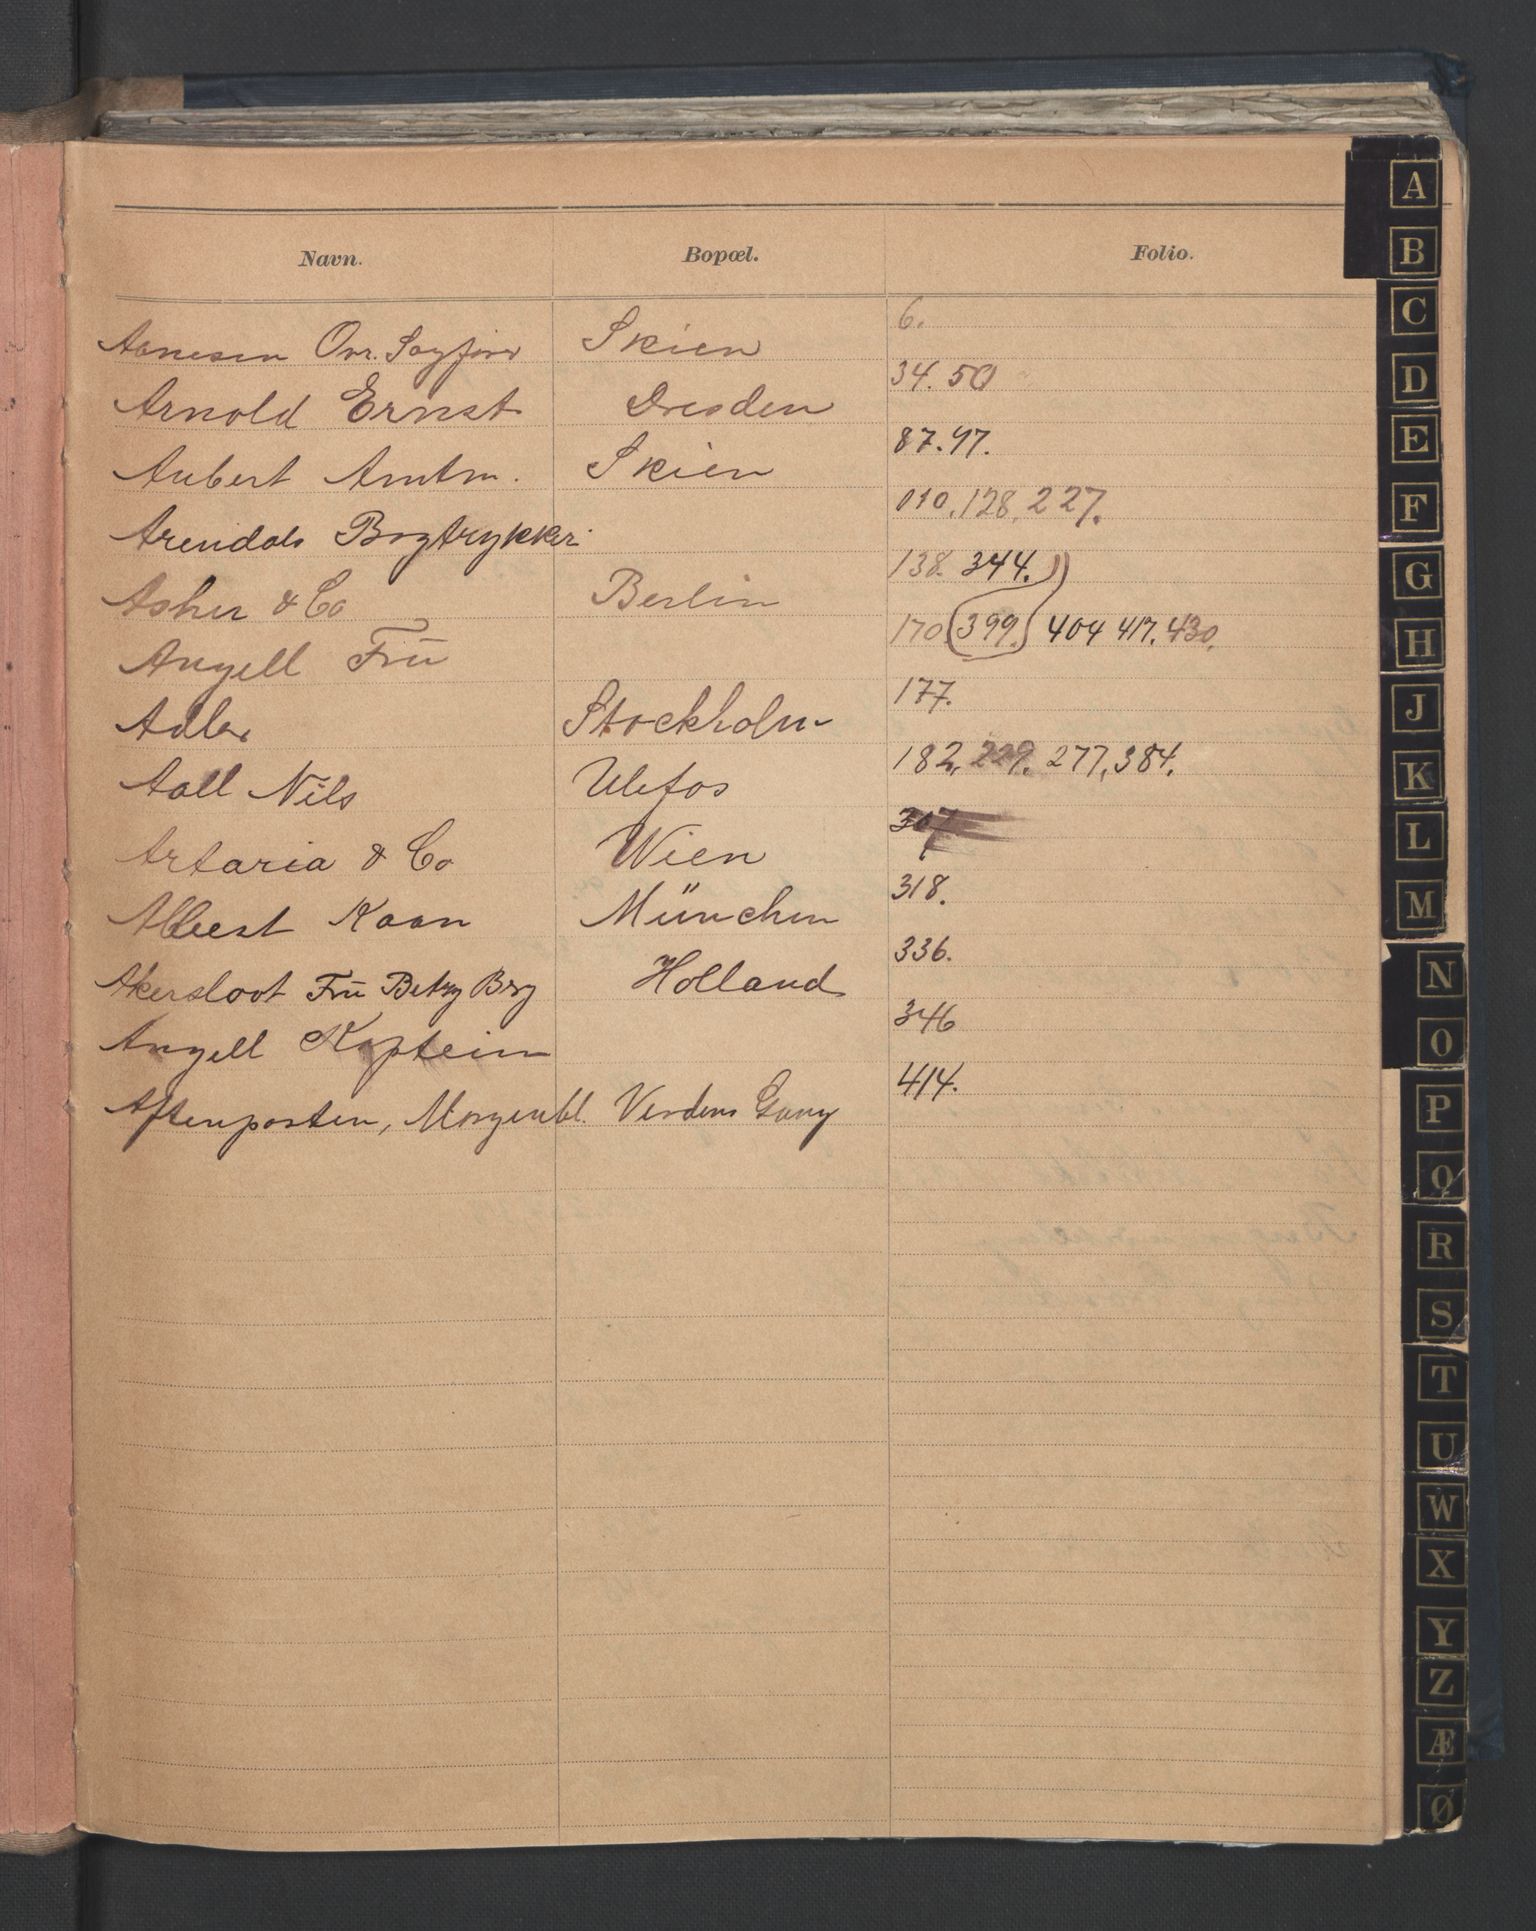 Navn. Bopæl. Folio.
Aanesen Ovr. Sagfører Skien 6.
Arnold Ernst Dresden 34. 50
Aubert Amtm. Skien 87. 97.
Arendals Bogtrykkeri 010. 128. 227.
Asher & Co Berlin 138. 344.
Angell Frū 170. 399. 404 417. 430.
Adler Stockholm 177.
Aall Nils Ulefos 182, 229. 277, 384.
Artaria & Co Wien 307
Albert Kaan München 318.
Akersloot Frū Betzy Berg Holland 336.
Angell Kaptein 346
Aftenposten, Morgenbl. Verdens Gang 414.
A
B
C
D
E
F
G
H
J
K
L
M
N
O
P
Q
R
S
T
U
W
X
Y
Z
Æ
Ø